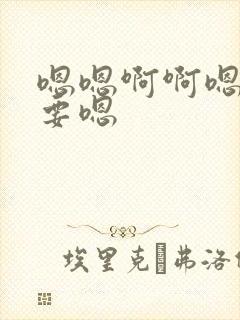 嗯嗯啊啊嗯
要嗯
埃里克·弗洛